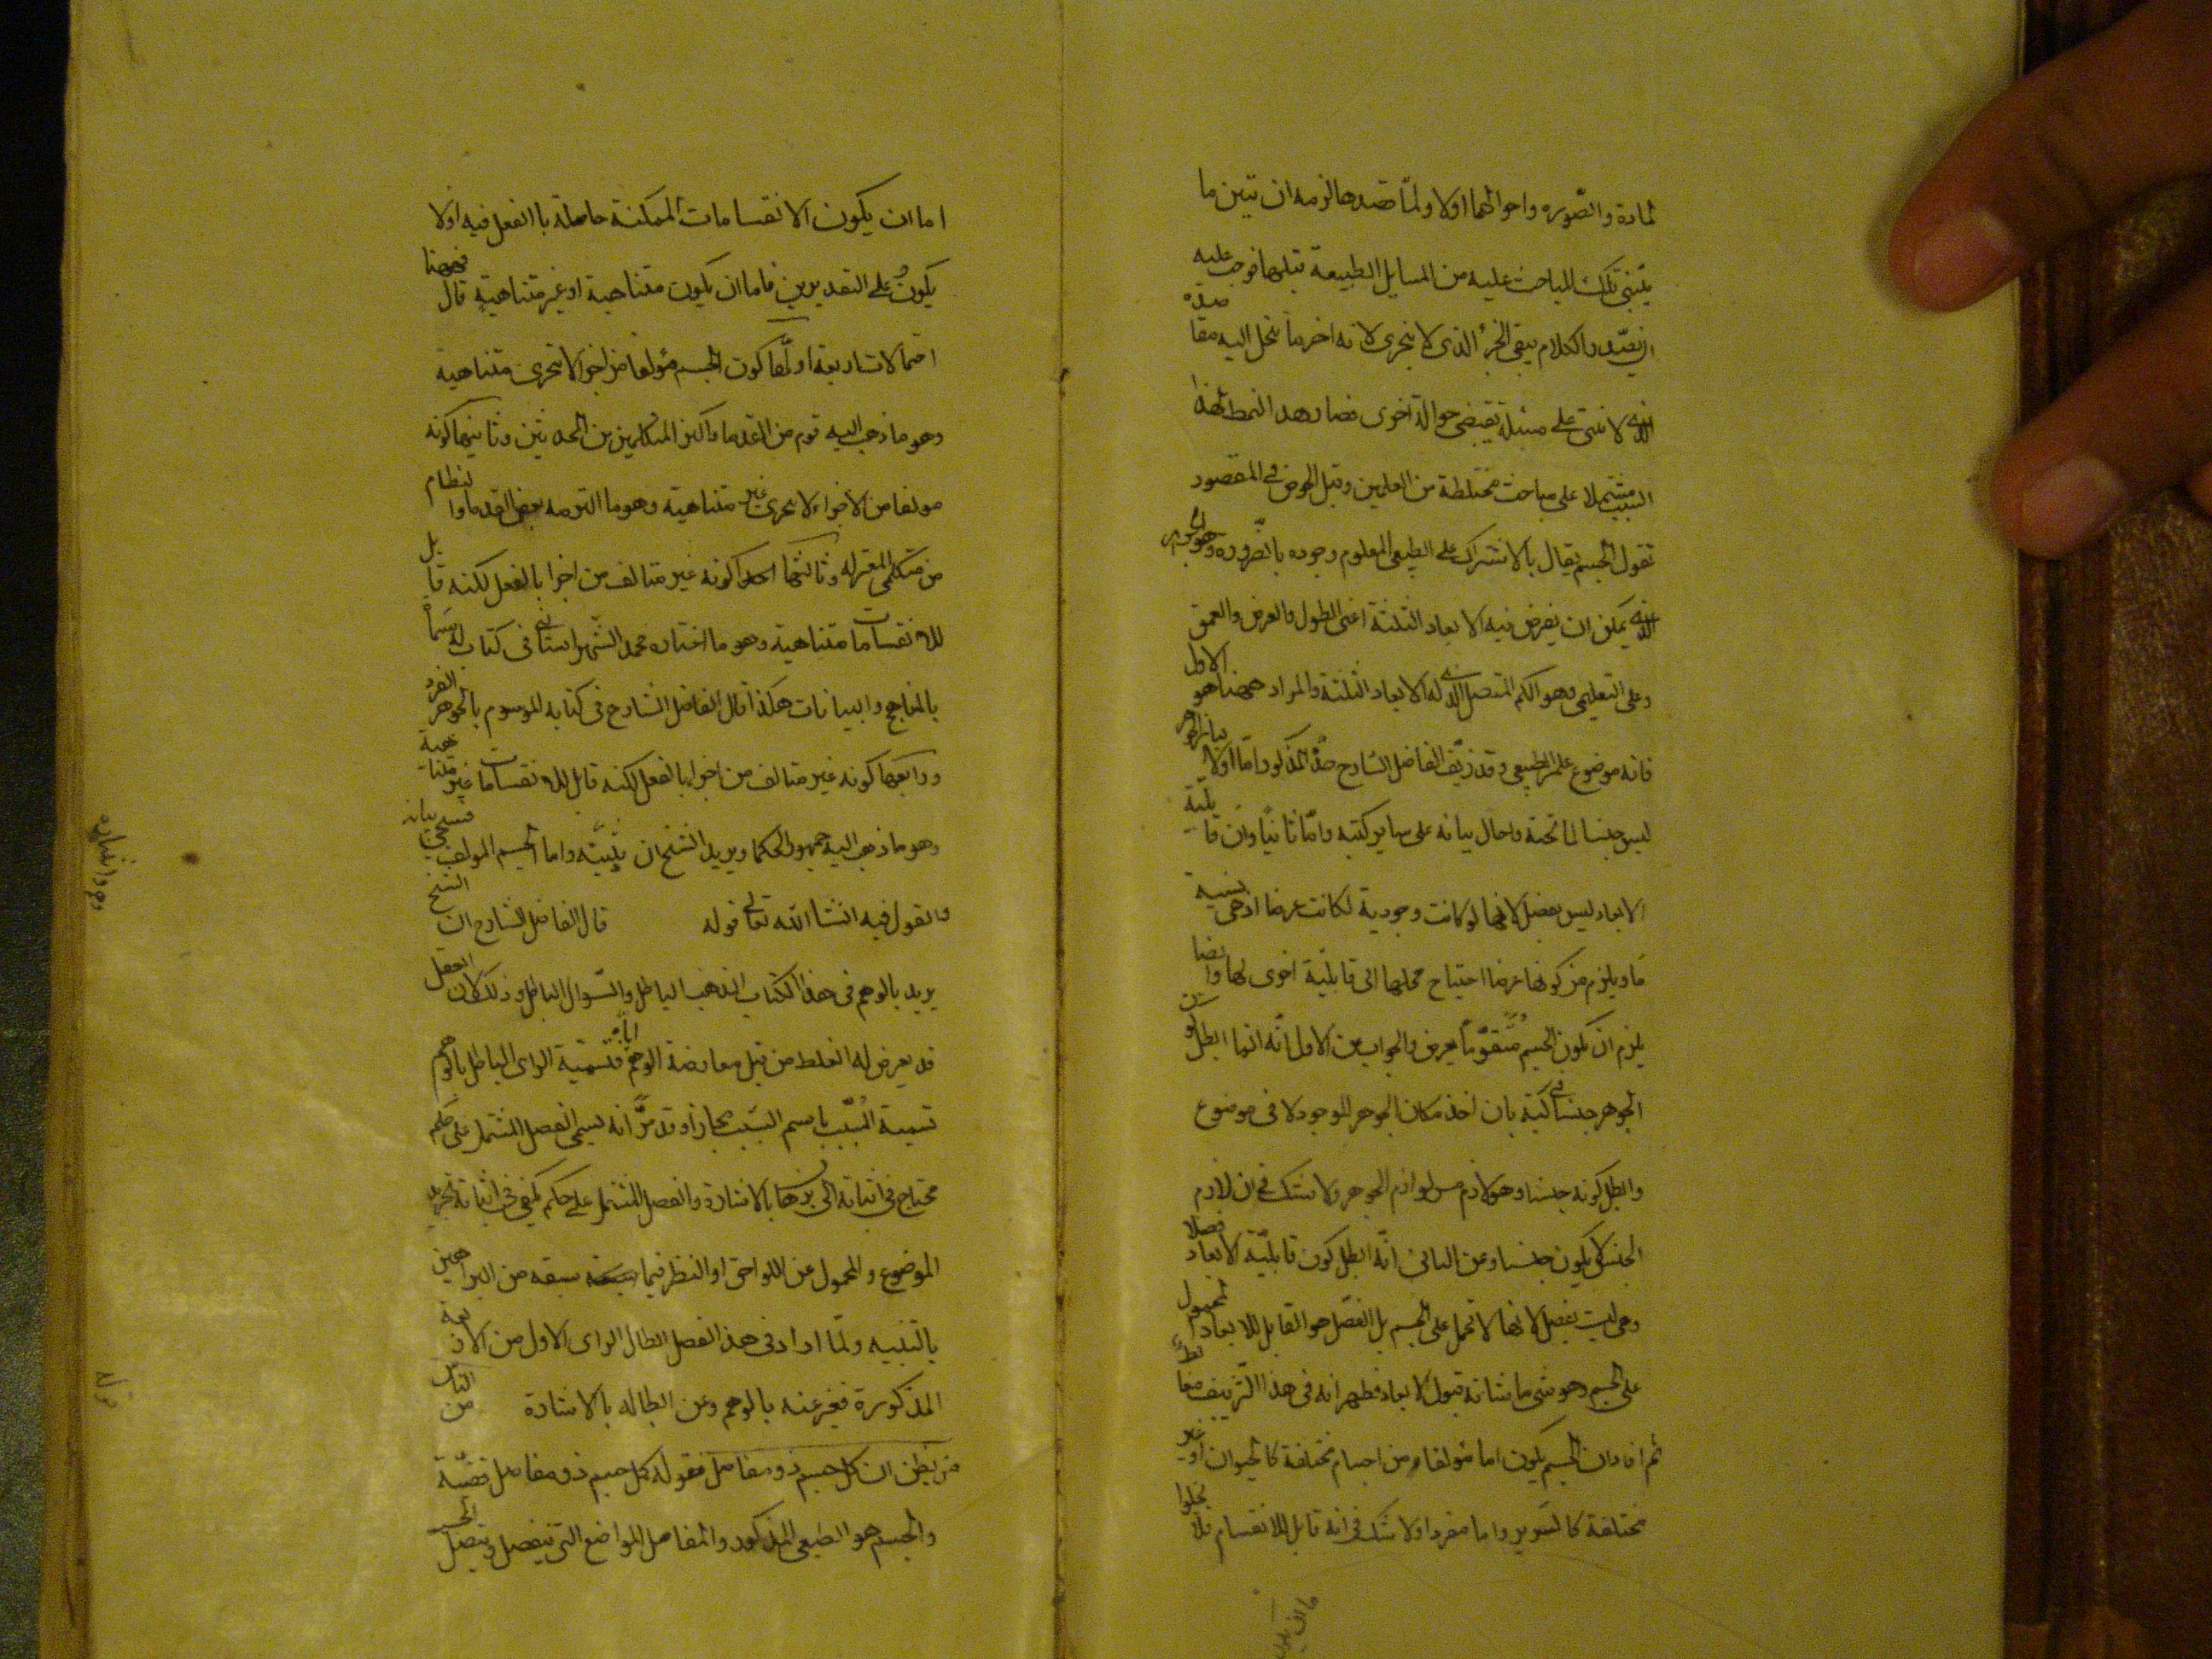 لمادة والصّوره واحوالهما اولا ولمّا قصدها لزمه ان تبين ما
يبتنى تلك المباحث عليه من المسايل الطبيعة قبلها فوجب عليه
ان يصدر الكلام بنفى الجزء الذى لا يتجزى لانه اخر ما ينحل اليه مقاصده
لا تبتنى على مسئلة تقتضى حوالة اخرى فصار هذا النمط لهذا
السبب مشتملا على مباحث مختلطة من العلمين وقبل الخوض فى المقصود
نقول الجسم يقال بالاشتراك على الطبيعى المعلوم وجوده بالضّروره وهو الجوهر
الذى يمكن ان يفرض فيه الابعاد الثلثة اعنى الطول والعرض والعمق
وعلى التعليمى وهو الكم المتصل الذى له الابعاد الثلثة والمراد ههنا هو الاول
فانه موضوع علم الطبيعى وقد زيّف الفاضل الشارح حدّه المذكور امّا اولا فبان الجوهر
ليس جنسا لما تحته واحال بيانه على ساير كتبه وامّا ثانيًا وان قابليّة
الابعاد ليس بفصل لانها لو كانت وجودية لكانت عرضا اذ هى نسبية
ما ويلزم من كونها عرضا احتياج محلها الى قابليّة اخرى لها وايضا
يلزم ان يكون الجسم متقوّمًا بعرض والجواب عن الاول انّه انما ابطل كون
الجوهر جنسا فى كتبه بان اخذ مكان الجوهر الموجود لا فى موضوع
وابطل كونه جنسا وهو لازم من لوازم الجوهر ولا شك فى ان لازم
الجنس لا يكون جنسا وعن الثانى انّه ابطل كون قابليّة الابعاد فصلا
وهى ليست بفصل لانها لا تحمل على الجسم بل الفصل هو القابل للابعاد المحمول
على الجسم وهو شى ما شانه قبول الابعاد فظهر انه فى هذا التزييف مغالط
ثم افاد ان الجسم يكون اما مؤلفا من اجسام مختلفة كالحيوان او غير
مختلفة كالسّرير واما مفردا ولا شك فى انه قابل للانقسام فلا يخلوا
اما ان يكون الانقسامات الممكنة حاصلة بالفعل فيه او لا
يكون وعلى التقديرين فاما ان يكون متناهية او غير متناهية قال فههنا
احتمالات اربعة اولها كون الجسم مؤلفا من اجزا لا تتجزى متناهية
وهو ما ذهب اليه قوم من القدما واكثر المتكلمين من المحدثين وثانيهما كونه
مولفا من الاجزاء لا تتجزى غير متناهية وهو ما التزمه بعض القدما والنظام
من متكلمى المعتزله وثالثها كونه غير متالف من اجزا بالفعل لكنه قابل
للانقسامات متناهية وهو ما اختاره محمد الشهرستانى فى كتاب له سمّاه
بالمناهج والبيانات هكذا قال الفاضل الشارح فى كتابه الموسوم بالجوهر الفرد
ورابعها كونه غير متالف من اجزاء بالفعل لكنه قابل للانقسامات غير متناهية
وهو ما ذهب اليه جمهور الحكما ويريد الشيخ ان يثبته واما الجسم المولف فسيجئ بيانه
والقول فيه انشا الله تعالى قوله قال الفاضل الشارح ان الشيخ
يريد بالوهم فى هذا الكتاب المذهب الباطل والسّوال الباطل وذلك لان العقل
قد يعرض له الغلط من قبل معارضة الوهم اياه فتسمية الراى الباطل بالوهم
تسمية المسبّب باسم السّبب مجازا وقد مرّ انه يسمى الفصل المشتمل على حكم
محتاج فى اثباته الى برهان بالاشارة والفصل المشتمل على حكم يكفى فى اثباته تجريد
الموضوع والمحمول عن اللواحق او النظر فيما سبقه من البراهين
بالتنبيه ولمّا اراد فى هذا الفصل ابطال الراى الاول من الاربعة
المذكورة فعبر عنه بالوهم وعن ابطاله بالاشارة من الناس
من يظن ان كل جسم ذو مفاصل فقوله كل جسم ذو مفاصل قضيّة
والجسم هو الطبيعى المذكور والمفاصل المواضع التى ينفصل ويتصل الجسم